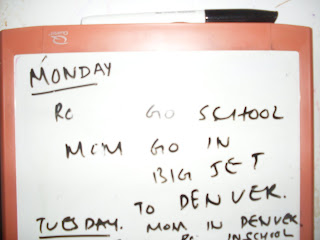 MONDAY
RC GO SCHOOL
MOM GO IN
BIG JET
TO DENVER.
TUESDAY. MOM IN DENVER.
RC IN SCHOOL